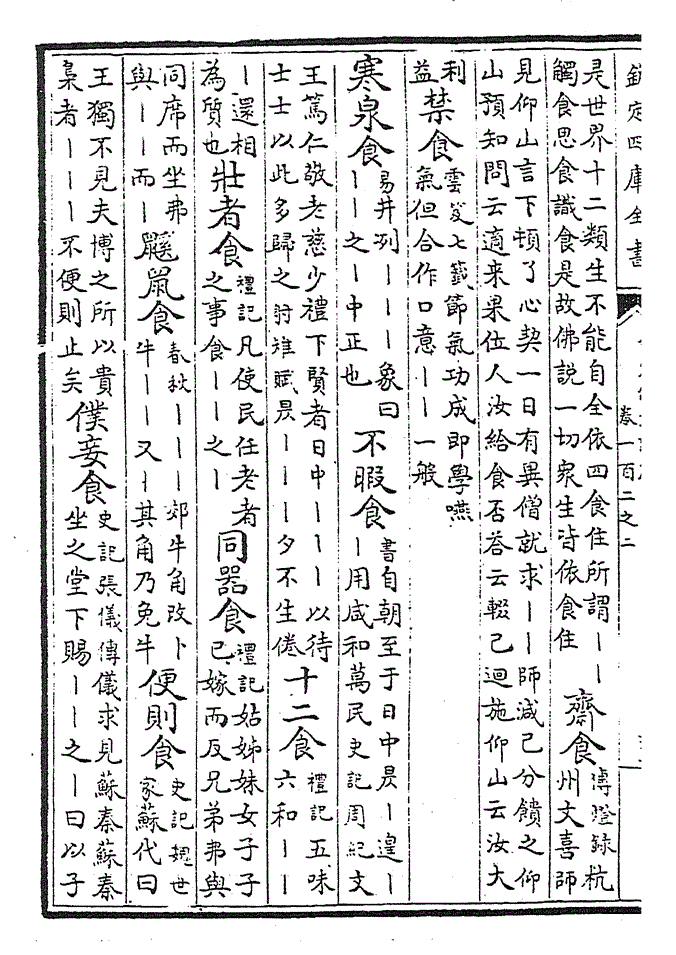 欽定四庫全書
卷一百二之二
是世界十二類生不能自全依四食住所謂丨丨
觸食思食識食是故佛說一切衆生皆依食住
齋食
傳燈錄杭
州文喜師
見仰山言下頓了心契一日有異僧就求丨丨師減己分饋之仰
山預知問云適来果位人汝給食否荅云輟己迴施仰山云汝大
利
益
禁食
雲笈七籤節氣功成即學嚥
氣但合作口意丨丨一般
寒泉食
易井冽丨丨丨象曰
丨丨之丨中正也
不暇食
書自朝至于日中昃丨遑丨
丨用咸和萬民史記周紀文
王篤仁敬老慈少禮下賢者日中丨丨丨以待
士士以此多歸之射雉賦昃丨丨丨夕不生倦
十二食
禮記五味
六和丨丨
丨還相
為質也
壯者食
禮記凡使民任老者
之事食丨丨之丨
同器食
禮記姑姊妹女子子
已嫁而反兄弟弗與
同席而坐弗
與丨丨而丨
鼷鼠食
春秋丨丨丨郊牛角改卜
牛丨丨又丨其角乃免牛
便則食
史記魏世
家蘇代曰
王獨不見夫博之所以貴
梟者丨丨丨不便則止矣
僕妾食
史記張儀傳儀求見蘇秦蘇秦
坐之堂下賜丨丨之丨曰以子